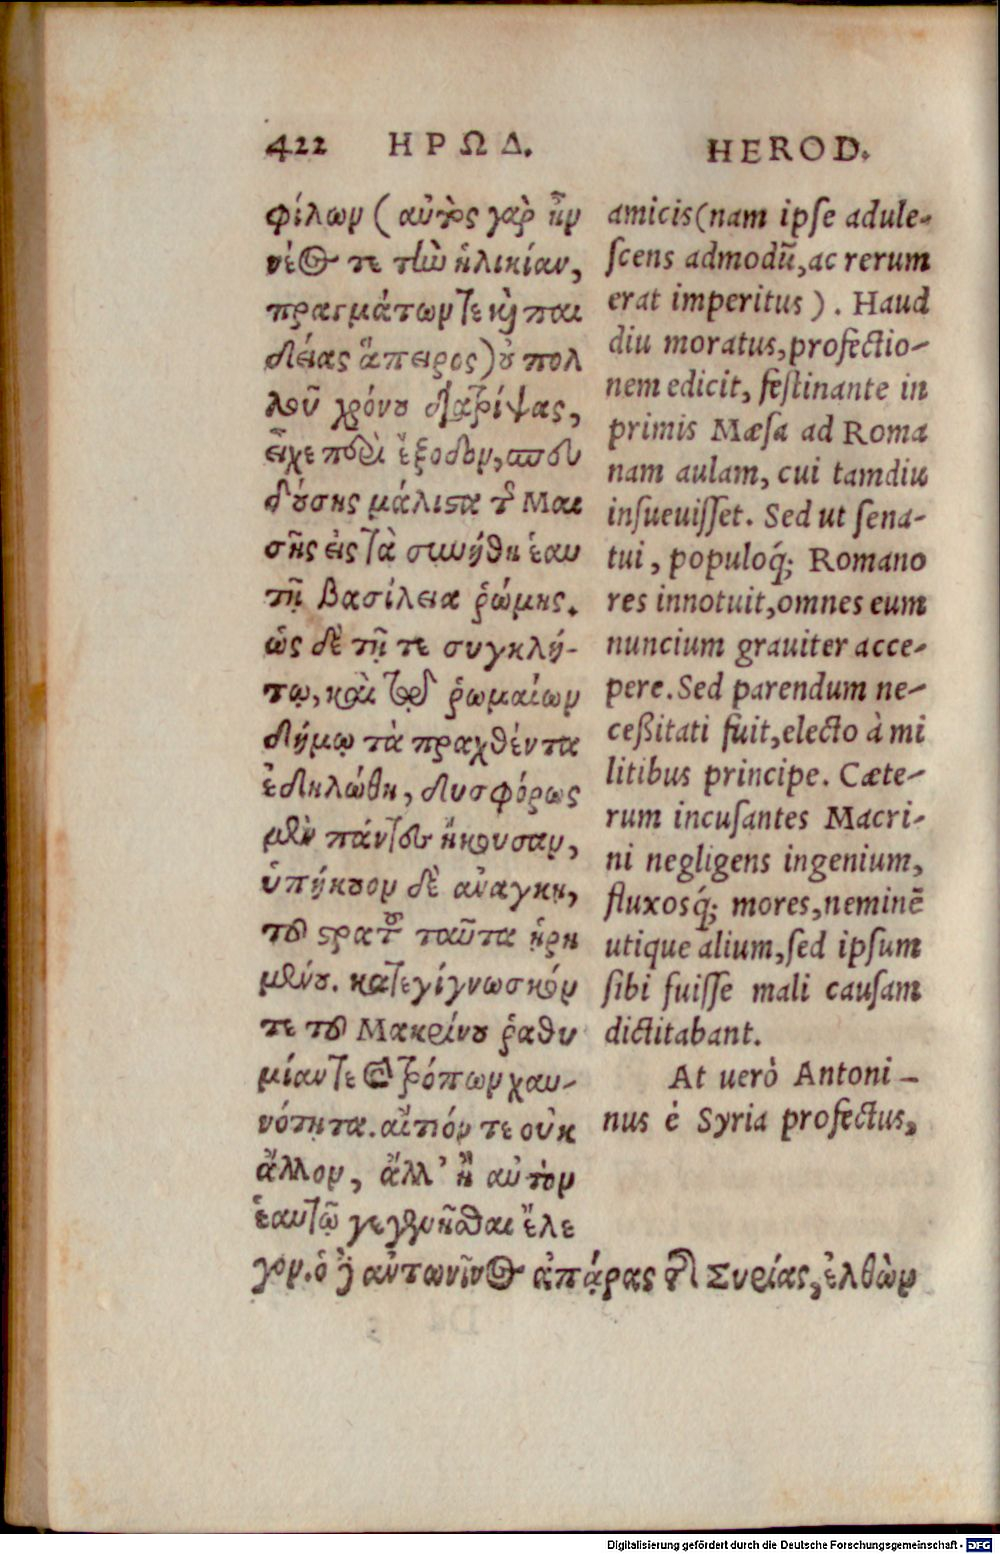 422 ΗΡΩΔ.
HEROD.
φίλων (αὐτὸς γὰρ ἦν
νέος τε τὴν ἡλικίαν,
πραγμάτων τε καὶ παι
δείας ἄπειρος) οὐ πολ
λοῦ χρόνου διατρίψας,
εἶχε περὶ ἔξοδον, σπευ
δούσης μάλιστα τῆς Μαι
σης εἰς τὰ συνήθη ἑαυ
τῇ βασίλεια ῥώμης.
ὡς δὲ τῇ τε συγκλή-
τῳ, καὶ τῷ ῥωμαίων
δήμῳ τὰ πραχθέντα
ἐδηλώθη, δυσφόρως
μὲν πάντες ἤκουσαν,
ὑπήκουον δὲ ἀνάγκῃ,
τοῦ στρατοῦ ταῦτα ᾑρη
μένου. κατεγίγνωσκόν
τε τοῦ Μακρίνου ῥαθυ
μίαν τε καὶ τρόπων χαυ-
νότητα. αἴτιόν τε οὐκ
ἄλλον, ἀλλ' ἢ αὐτὸν
ἑαυτῷ γεγενῆσθαι ἔλε
γον. ὁ δὲ ἀντωνῖνος ἀπάρας τῆς Συρίας, ἐλθὼν
amicis (nam ipse adule-
scens admodũ, ac rerum
erat imperitus). Haud
diu moratus, profectio-
nem edicit, festinante in
primis Mæsa ad Roma
nam aulam, cui tamdiu
insueuisset. Sed ut sena-
tui, populoq́; Romano
res innotuit, omnes eum
nuncium grauiter acce-
pere. Sed parendum ne-
ceßitati fuit, electo à mi
litibus principe. Cæte-
rum incusantes Macri-
ni negligens ingenium,
fluxosq́; mores, neminẽ
utique alium, sed ipsum
sibi fuisse mali causam
dictitabant.
At uerò Antoni-
nus è Syria profectus,
Digitalisierung gefördert durch die Deutsche Forschungsgemeinschaft - DFG